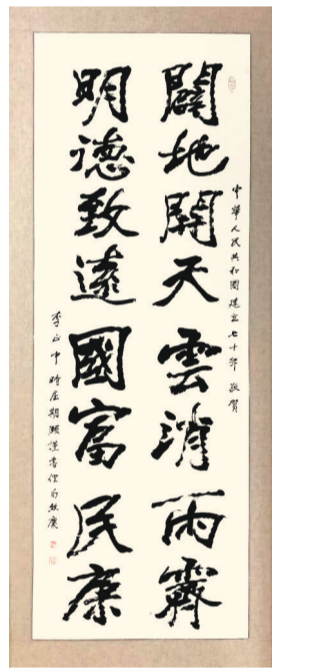 中華人民共和國建立七十年 敬賀
闢地開天雲消雨霽
明德致遠國富民康
李正中時居期頤謹書俚句頌慶